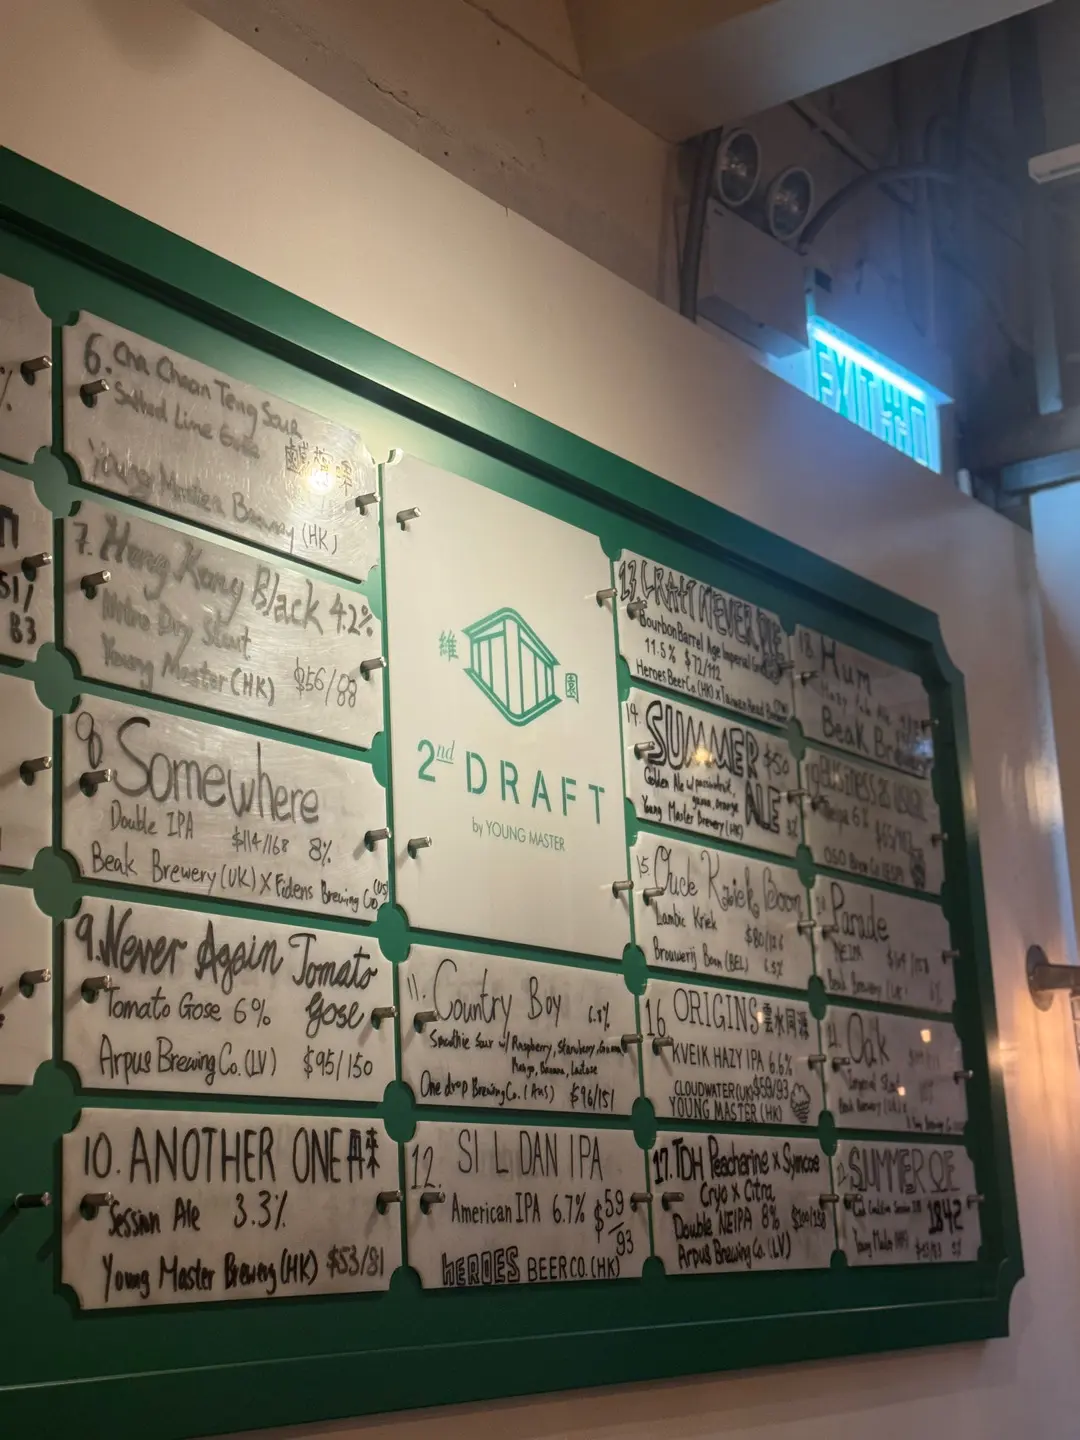 6. Cha Chaan Teng Sour
Salted Lime Gose
鹹檸啤
Young Master Brewery (HK)
7. Hong Kong Black 4.2%
Nitro Dry Stout
Young Master (HK) $56/88
8 Somewhere
Double IPA $114/168 8%
Beak Brewery (UK) X Fidens Brewing Co (US)
9. Never Again Tomato
Gose
Tomato Gose 6%
Arpus Brewing Co. (LV) $95/150
10. ANOTHER ONE 再來
Session Ale 3.3%
Young Master Brewery (HK) $53/81
2nd DRAFT
by YOUNG MASTER
11. Country Boy 6.8%
Smoothie Sour w/ Raspberry, Strawberry, Guava
Mango, Banana, Lactose
One drop Brewing Co. (AUS) $96/151
12. SI L DAN IPA
American IPA 6.7% $59/93
HEROES BEER CO. (HK)
13 CRAFT NEVER DIE
Bourbon Barrel Age Imperial
11.5% $72/112
Heroes Beer Co. (HK) x Taiwan Head Brewers (TW)
14. SUMMER ALE $50
Golden Ale w/ passionfruit,
guava, orange
Young Master Brewery (HK)
15. Oude Kriek Boon
Lambic Kriek $80/126
Brouwerij Boon (BEL) 6.5%
16 ORIGINS 雲水同源
KVEIK HAZY IPA 6.6%
CLOUDWATER (UK) $59/93
YOUNG MASTER (HK)
17. TDH Peacharine x Simcoe
Cryo x Citra
Double NEIPA 8% $100/158
Arpus Brewing Co. (LV)
18. Hum
Hazy Pale Ale
Beak Brewery
BUSINESS AS USUAL
6%
Parade
NEIPA
Beak Brewery (UK) 6%
21. Oak
Imperial Stout
Beak Brewery (UK)
SUMMER OF
1842
Young Master (HK)
EXIT 出口